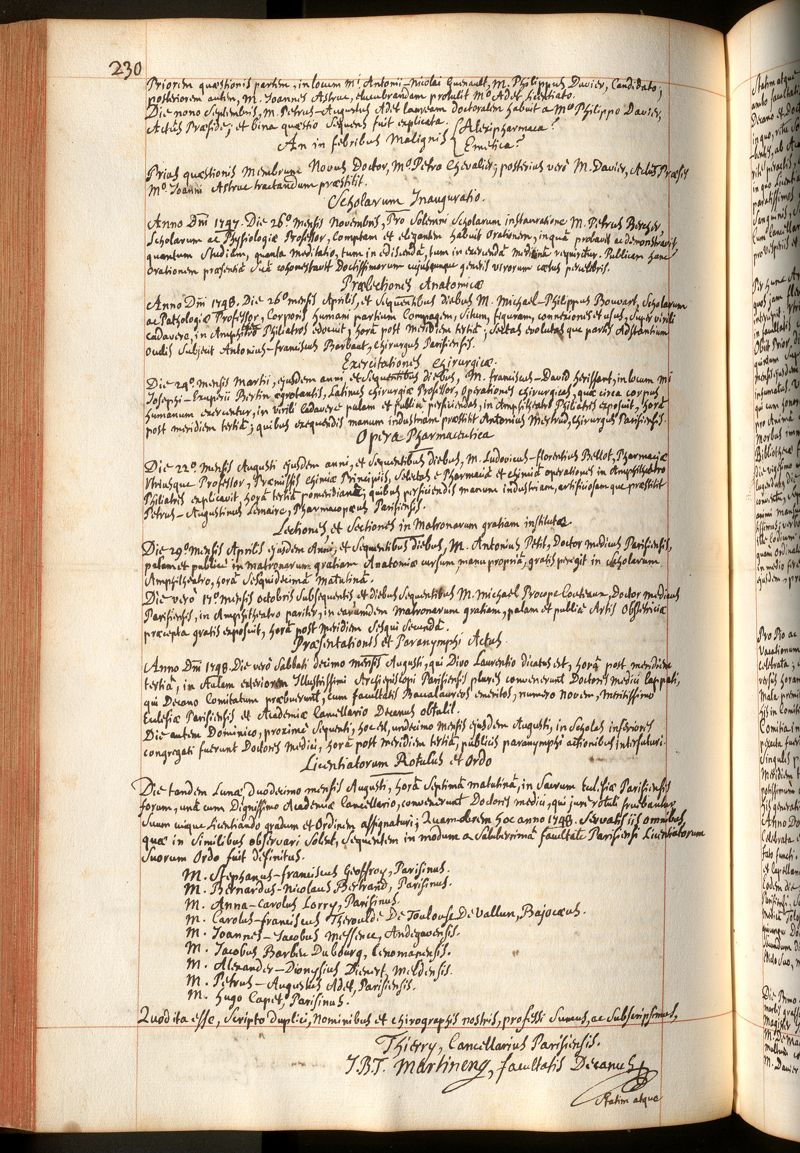 230
Priorem quæstionis partem, in locum mi. Antonii-Nicolai Guenault, M. Philippus Davier, Candidato;
posteriorem autem, M. Joannes Astruc, elucubrandam protulit Mo. Adet licentiato.
Die nono Septembris, M. Petrus-Augustus Adet lauream doctoralem habuit a Mo. Philippo Davier,
Actus Præside; et bina quæstio sequens fuit explicata.
An in febribus Malignis { Alexipharmaca?
Emetica?
Prius quæstionis membrum Novus Doctor, Mo. Petro Chevalier; posterius verò M. Davier, Actus Præses
Mo. Joanni Astruc tractandum præstitit.
Scholarum Inauguratio.
Anno Dni 1747. Die 26o. mensis Novembris, Pro Solemni Scholarum instauratione M. Petrus Bercher,
Scholarum ac Physiologiæ Professor, Comptam et elegantem habuit Orationem, in quâ probavit ac demonstravit,
quantum Studium, quanta meditatio, tum in ediscendâ, tum in exercendâ medicinâ requiritur. Publicam hanc
orationem præsentiâ suâ cohonestavit Doctissimorum cujuscumque generis virorum cœtus percelebris.
Prælectiones Anatomicæ
Anno Dni 1748. Die 26o. mensis Aprilis, et Sequentibus diebus M. Michael-Philippus Bouvart, Scholarum
ac Pathologiæ Professor, Corporis humani partium Compagem, Situm, figuram, connexiones et usus, super virili
cadavere, in Amphitheatro Philiatros edocuit, horâ post meridiem tertiâ; Sectas evolutasque partes Adstantium
oculis Subjecit Antonius-franciscus Barbaut, Chirurgus Parisiensis.
Exercitationes Chirurgicæ.
Die 24o. mensis Martii, ejusdem anni, et Sequentibus diebus, M. franciscus-David herissant, in locum mi
Josephi-Exuperii Bertin ægrotantis, Latinus chirurgiæ Professor, operationes chirurgicas, quæ circa corpus
humanum exercentur, in virili Cadavere palam et publicè perficiendas, in Amphitheatro Philiatris exposuit, horâ
post meridiem tertiâ; quibus exequendis manum industriam præstitit Antonius Mertrud, Chirurgus Parisiensis.
Opera Pharmaceutica
Die 22o. mensis Augusti ejusdem anni, et Sequentibus diebus, M. Ludovicus-florentius Bellot, Pharmaciæ
Utriusque Professor, Præmissis chimiæ Principiis, Selectas e Pharmaciâ et chimiâ operationes in Amphitheatro
Philiatris explicavit, horâ tertiâ pomeridianâ; quibus perficiendis manum industriam, artificiosamque præstitit
Petrus-Augustinus Lemaire, Pharmacopæus Parisiensis.
Lectiones et Sectiones in Matronarum gratiam institutæ
Die 29o. mensis Aprilis ejusdem Anni, et Sequentibus diebus, M. Antonius Petit, Doctor medicus Parisiensis,
palam et publicè in matronarum gratiam Anatomiæ cursum manu propriâ, gratis peregit in Scholarum
Amphitheatro, horâ Sesquidecimâ matutinâ.
Die verò 17o. mensis octobris Subsequentis et diebus Sequentibus M. michael Procope Couteaux, Doctor medicus
Parisiensis, in Amphitheatro pariter, in earumdem matronarum gratiam, palam et publicè Artis Obstetriciæ
præcepta gratis exposuit, horâ post meridiem Sesqui Secundâ.
Præsentationis et Paranymphi Actus
Anno Dni 1748. Die verò Sabbati decimo mensis Augusti, qui Divo Laurentio dicatus est, horâ post meridiem
tertiâ, in Aulam exteriorem Illustrissimi Archiepiscopi Parisiensis plures convenerunt Doctores medici Cappati,
qui Decano Comitatum præbuerunt, cum facultatis Baccalaureos emeritos, numero novem, meritissimo
Ecclesiæ Parisiensis et Academiæ Cancellario Decanus obtulit.
Die autem Dominico, proximè Sequenti, hoc est, undecimo mensis ejusdem Augusti, in Scholas inferiores
congregati fuerunt Doctores medici, horâ post meridiem tertiâ, publicis paranymphi actionibus interfuturi.
Licentiatorum Rotulus et Ordo
Die tandem Lunæ duodecimo mensis Augusti, horâ Septimâ matutinâ, in Sacrum Ecclesiæ Parisiensis
forum, unâ cum Dignissimo Academiæ Cancellario, convenerunt Doctores medici, qui jure rotuli fruebantur
Suum cuique licentiando gradum et Ordinem assignaturi; Quamobrem hoc anno 1748. Servatis iis omnibus,
quæ in Similibus observari Solent, Sequentem in modum a Saluberrimâ facultate Parisiensi Licentiatorum
Suorum Ordo fuit definitus.
M. Stephanus-franciscus Geoffroy, Parisinus.
M. Bernardus-Nicolaus Bertrand, Parisinus.
M. Anna-Carolus Lorry, Parisinus.
M. Carolus-franciscus Theroulde De Toulouse De Vallun, Bajocæus.
M. Joannes-Jacobus Messence, Andegavensis.
M. Jacobus Barbeu Dubourg, Cenomanensis.
M. Alexander-Dionysius Dienert, Meldensis.
M. Petrus-Augustus Adet, Parisiensis.
M. Hugo Capet, Parisinus.
Quod ita esse, Scripto duplici, Nominibus et chirographis nostris, professi Sumus, ac Subscripsimus,
Thierry, Cancellarius Parisiensis.
J.B.T. Martinenq, facultatis Decanus
Statim atque